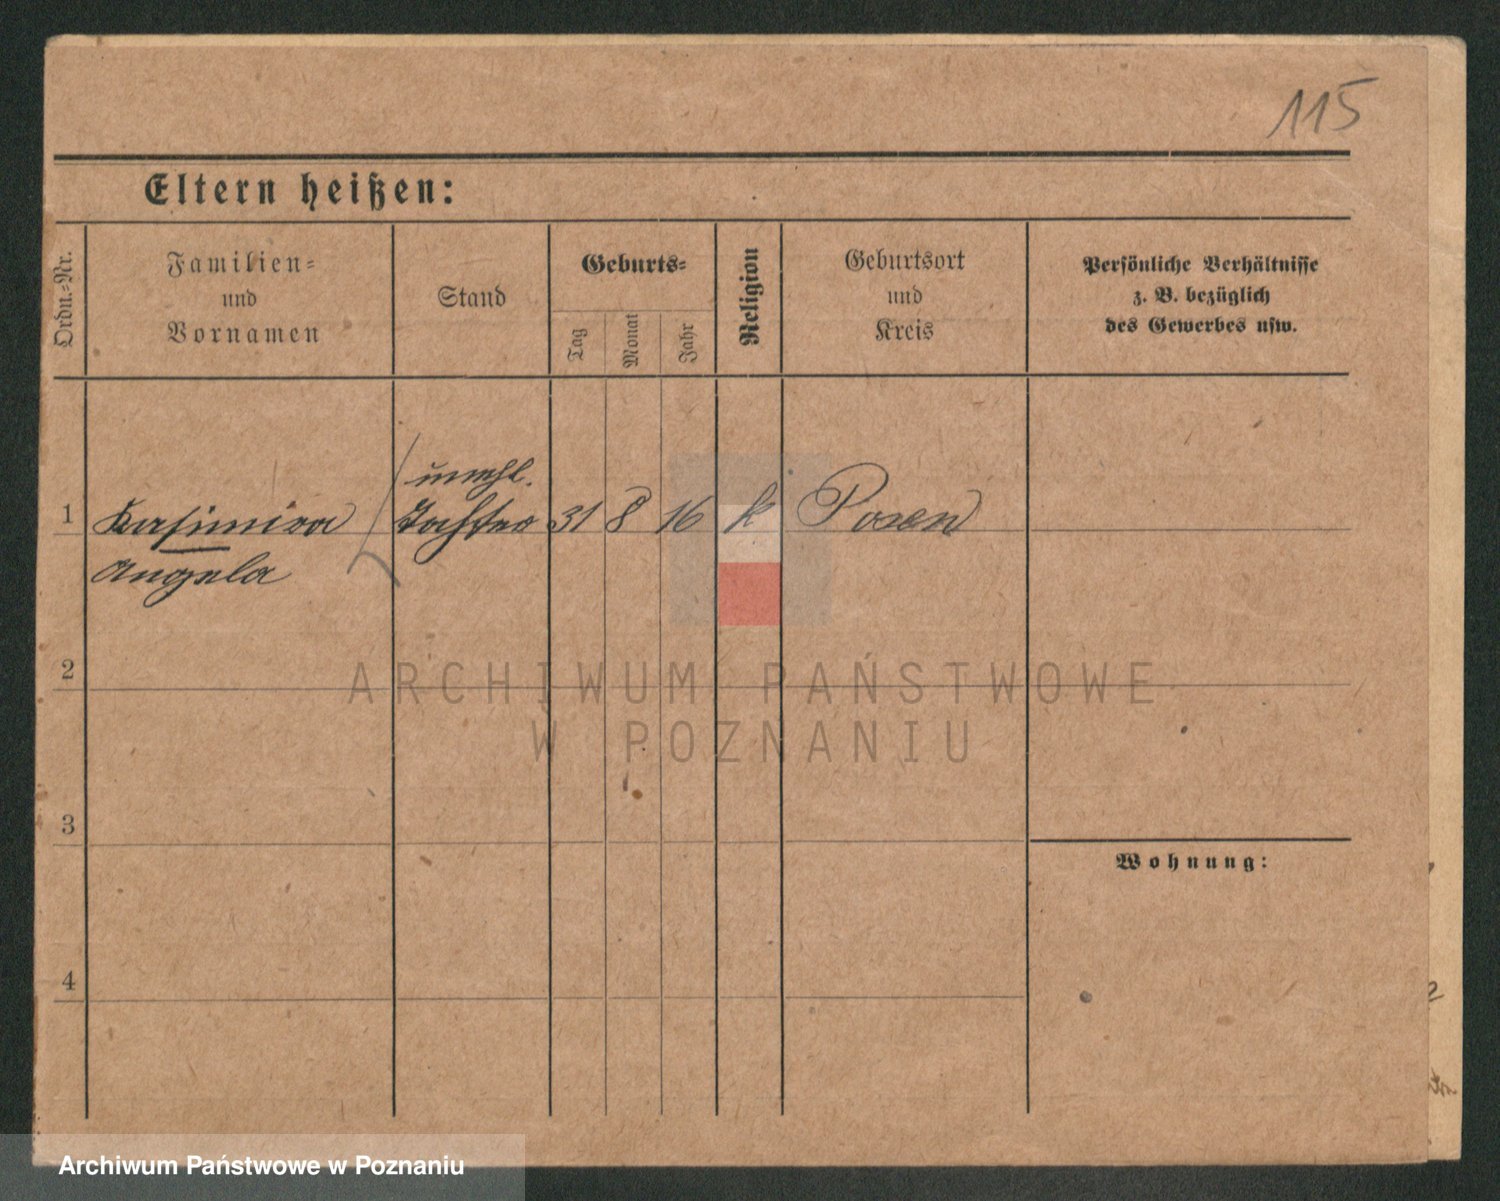 115
Eltern heißen:
Ordn.-Nr.
Familien-
und
Vornamen
Stand
Geburts-
Tag
Monat
Jahr
Religion
Geburtsort
und
Kreis
Persönliche Verhältnisse
z. B. bezüglich
des Gewerbes usw.
unehl.
1 Kasimira Tochter 31 8 16 k Posen
Angela
2
ARCHIWUM PAŃSTWOWE
W POZNANIU
3
Wohnung:
4
Archiwum Państwowe w Poznaniu